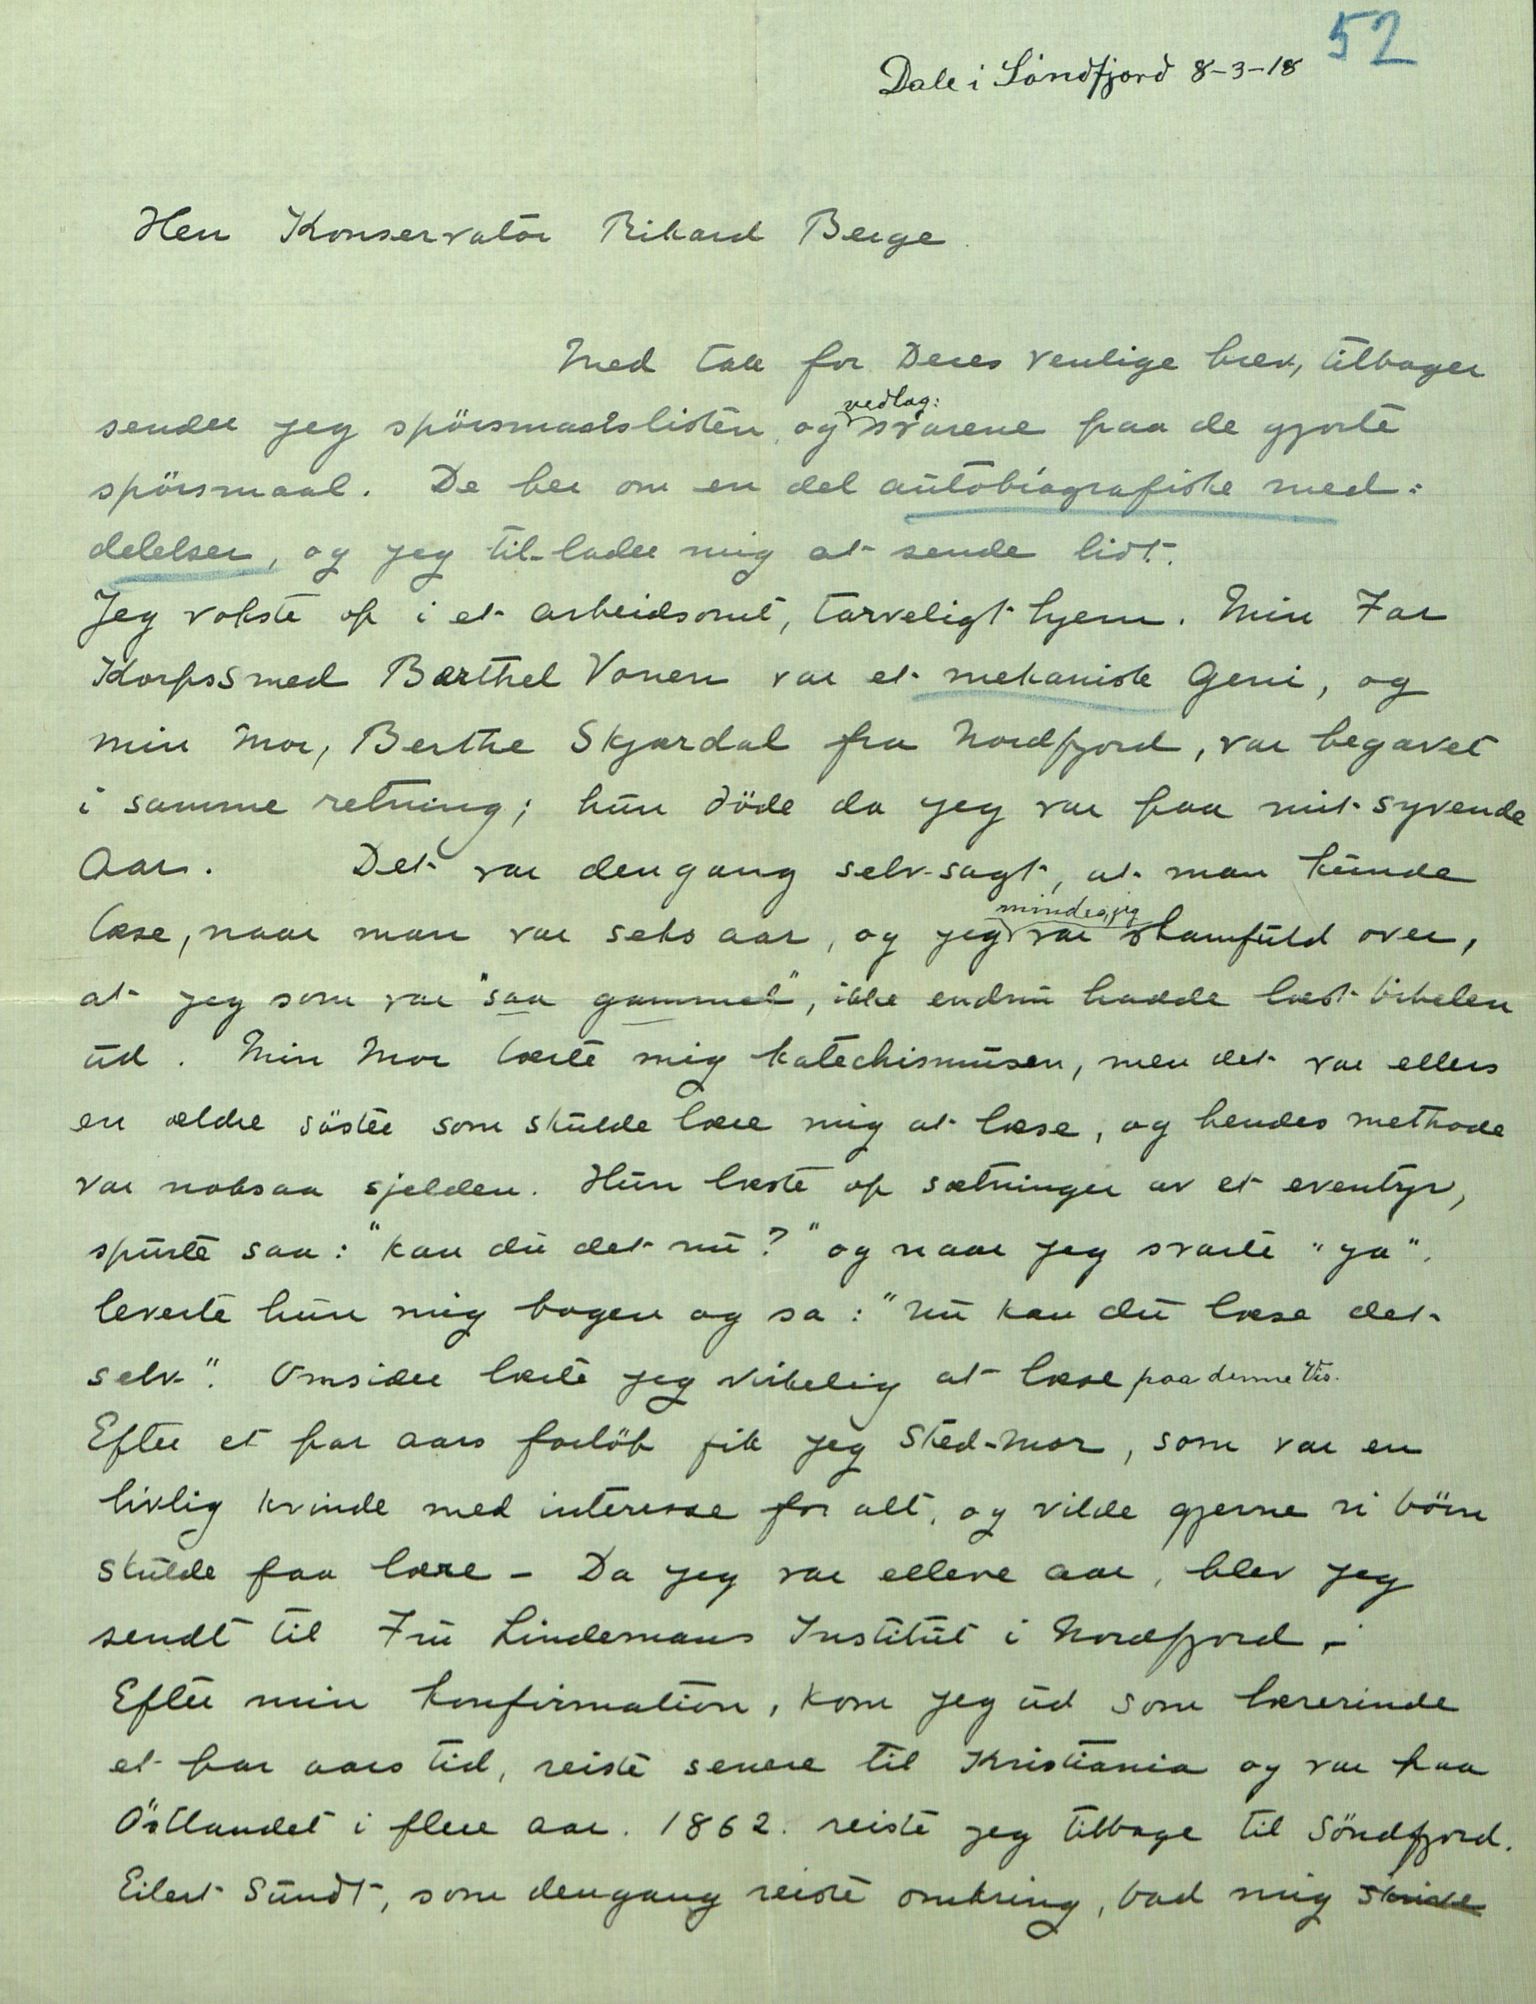 52
Dale i Söndfjord 8-3-18
Herr Konservator Rikard Berge
Med tak for Deres venlige brev, tilbager
vedlag:
sender jeg spörsmaalslisten, og svarene paa de gjorte
spörsmaal. De ber om en del autobiografiske med:
delelser, og jeg til-lader mig at sende lidt.
Jeg vokste op i et arbeidsomt, tarveligt hjem. Min Far
Korpssmed Barthel Vonen var et mekanisk Geni, og
min Mor, Berthe Skjærdal fra Nordfjord, var begavet
i samme retning; hun döde da jeg var paa mit syvende
Aar. Det var dengang selv-sagt, at man kunde
mindes jeg
læse, naar man var seks aar, og jeg var skamfuld over,
at jeg som var "saa gammel", ikke endnu hadde læst bibelen
ud. Min Mor lærte mig katechismusen, men det var ellers
en ældre söster som skulde lære mig at læse, og hendes methode
var noksaa sjelden. Hun læste op sætninger av et eventyr,
spurte saa: "kan du det nu?" og naar jeg svarte "ja".
leverte hun mig bogen og sa: "nu kan du læse det-
selv". Omsider lærte jeg virkelig at læse paa denne vis.
Efter et par aars forlöp fik jeg Sted-Mor, som var en
livlig kvinde med interesse for alt, og vilde gjerne vi börn
skulde faa lære - Da jeg var elleve aar, blev jeg
sendt til Fru Lindemans Institut i Nordfjord.-
Efter min konfirmation, kom jeg ud som lærerinde
et par aars tid, reiste senere til Kristiania og var paa
Östlandet i flere aar. 1862. reiste jeg tilbage til Söndfjord.
Eilert Sundt, som dengang reiste omkring, bad mig skrive